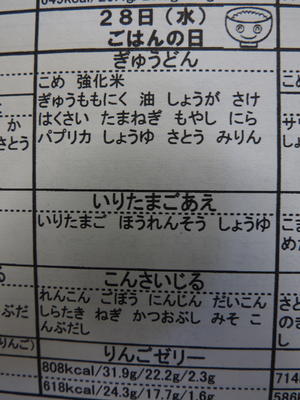 28日（水）
ごはんの日
ぎゅうどん
こめ 強化米
ぎゅうももにく 油 しょうが さけ
はくさい たまねぎ もやし にら
パプリカ しょうゆ さとう みりん
いりたまごあえ
いりたまご ほうれんそう しょうゆ
こんさいじる
れんこん ごぼう にんじん だいこん
しらたき ねぎ かつおぶし みそ こ
んぶだし
りんごゼリー
808kcal/31.9g/22.2g/2.3g
618kcal/24.3g/17.7g/1.6g